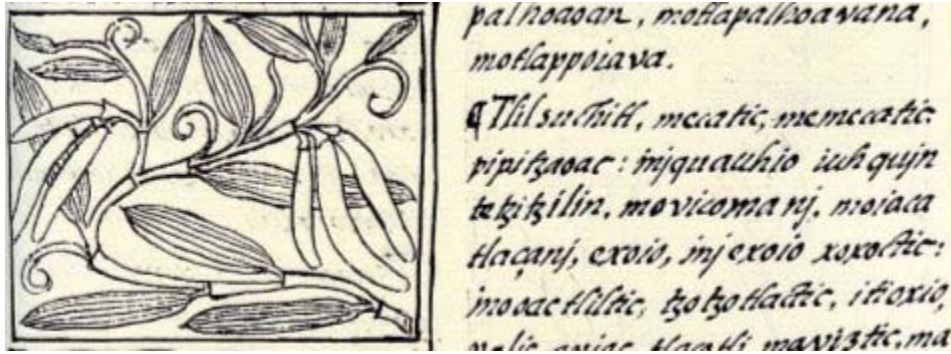 palhoaoan, motlapalhoavana,
motlappoiava.
¶ Tlilsuchitl, mecatic, memecatic
pipitzaoac: injquauhio iuhquijn
tetzitzilin, movicomanj, moiaca
tlaçanj, exoio, injexoio xoxoctic:
inooac tliltic, tzotzotlactic, itioxio,